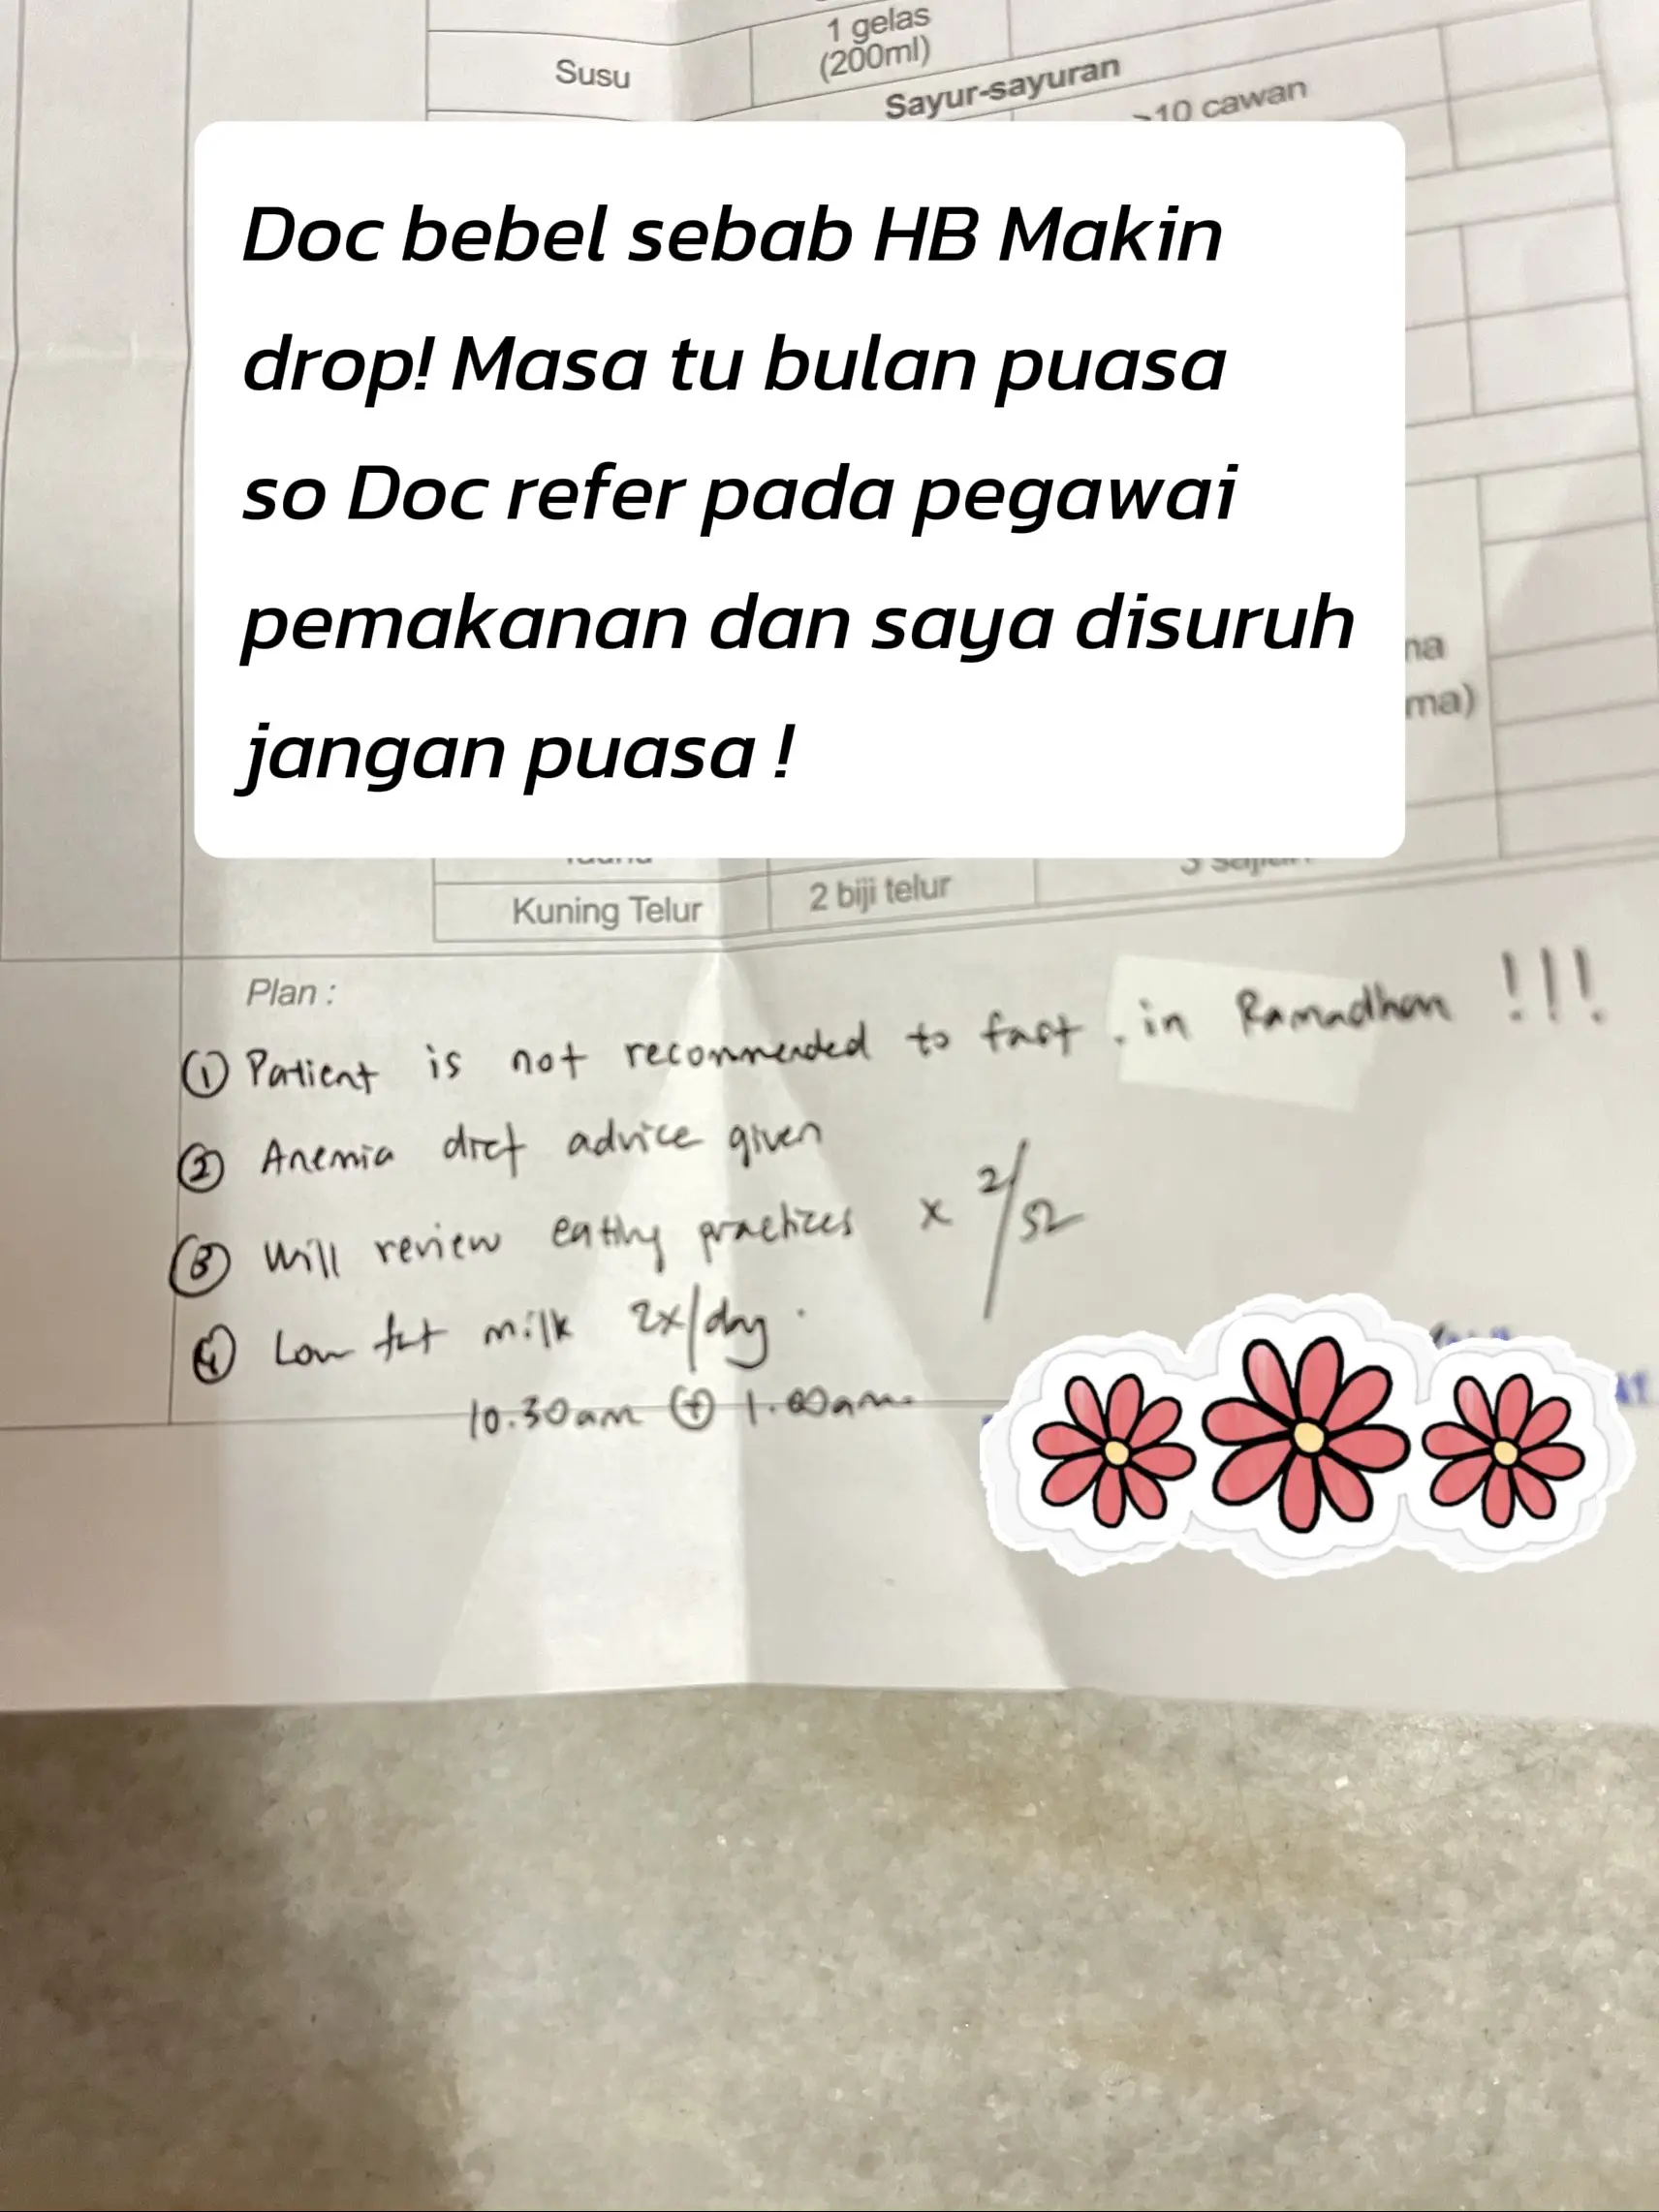 1 gelas
Susu
(200ml)
Sayur-sayuran
>10 cawan
Doc bebel sebab HB Makin
drop! Masa tu bulan puasa
so Doc refer pada pegawai
pemakanan dan saya disuruh
jangan puasa !
ma)
Kuning Telur
2 biji telur
3 sajian
Plan :
① Patient is not recommended to fast . in Ramadhan !!!
② Anemia diet advice given
③ Will review eating practices x 2/52
④ Low fat milk 2x/day .
10.30am ⊕ 1.00am.